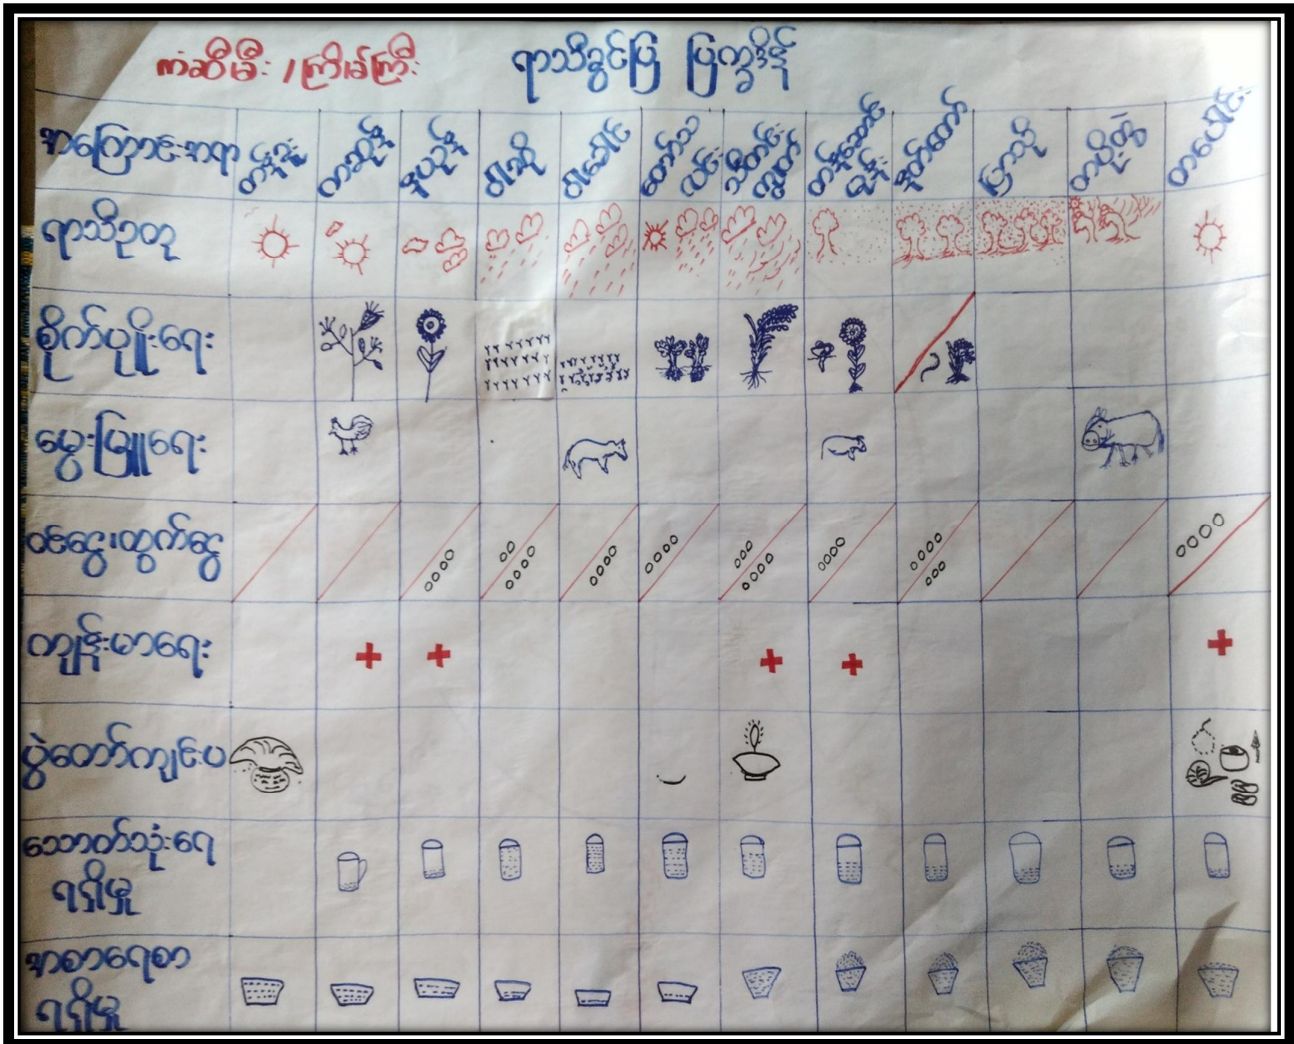 ကံဆီမီး / ကြိမ်ကြီး
ရာသီခွင်ပြ ပြက္ခဒိန်
အကြောင်းအရာ
တန်ခူး
ကဆုန်
နယုန်
ဝါဆို
ဝါခေါင်
တော်သလင်း
သီတင်းကျွတ်
တန်ဆောင်မုန်း
နတ်တော်
ပြာသို
တပို့တွဲ
တပေါင်း
ရာသီဥတု
စိုက်ပျိုးရေး
မွေးမြူရေး
ဝင်ငွေ၊ထွက်ငွေ
ကျန်းမာရေး
ပွဲတော်ကျင်းပ
သောက်သုံးရေ
ရရှိမှု
အစားရေစာ
ရရှိမှု